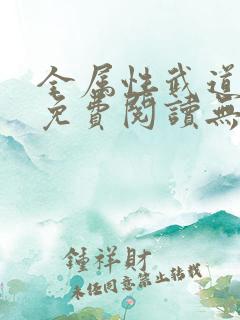 全属性武道
免費閱讀無
鍾祥財
未经同意禁止转载